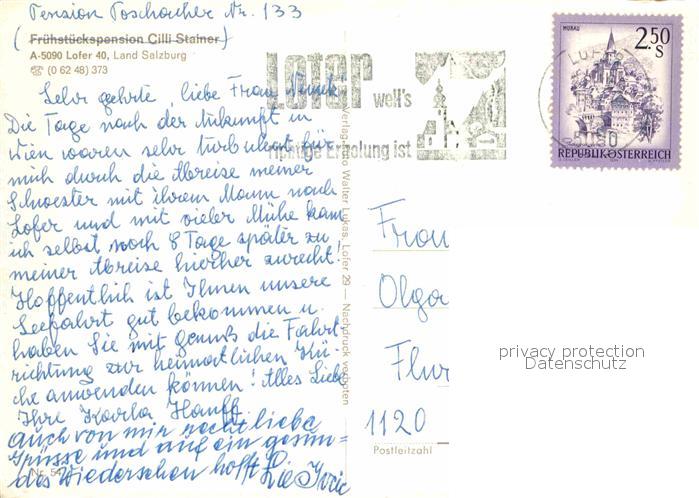 Pension Poschacher Nr. 133
(Frühstückspension Cilli Stainer)
A-5090 Lofer 40, Land Salzburg
☎ (0 62 48) 373
Sehr geehrte, liebe Frau
Die Tage nach der Ankunft in
Wien waren sehr turbulent für
mich durch die Abreise meiner
Schwester mit ihrem Mann nach
Lofer und mit vieler Mühe kam
ich selbst noch 8 Tage später zu
meiner Abreise hierher zurecht!
Hoffentlich ist Ihnen unsere
Seefahrt gut bekommen u.
haben Sie mit Genuß die Fahrt-
richtung zur heimatlichen Kü-
che anwenden können! Alles Liebe
Ihre Karla Hanff
auch von mir recht liebe
Grüsse und auf ein gesun=
des Wiedersehen hofft Sie
Nr. 54
Verlag Foto Walter Lukas, Lofer 29 — Nachdruck verboten
Lofer
weil's
richtige Erholung ist
MURAU
2.50
S
REPUBLIK ÖSTERREICH
LOFER
5090
Frau
Olga
Flur
1120
Postleitzahl
privacy protection
Datenschutz